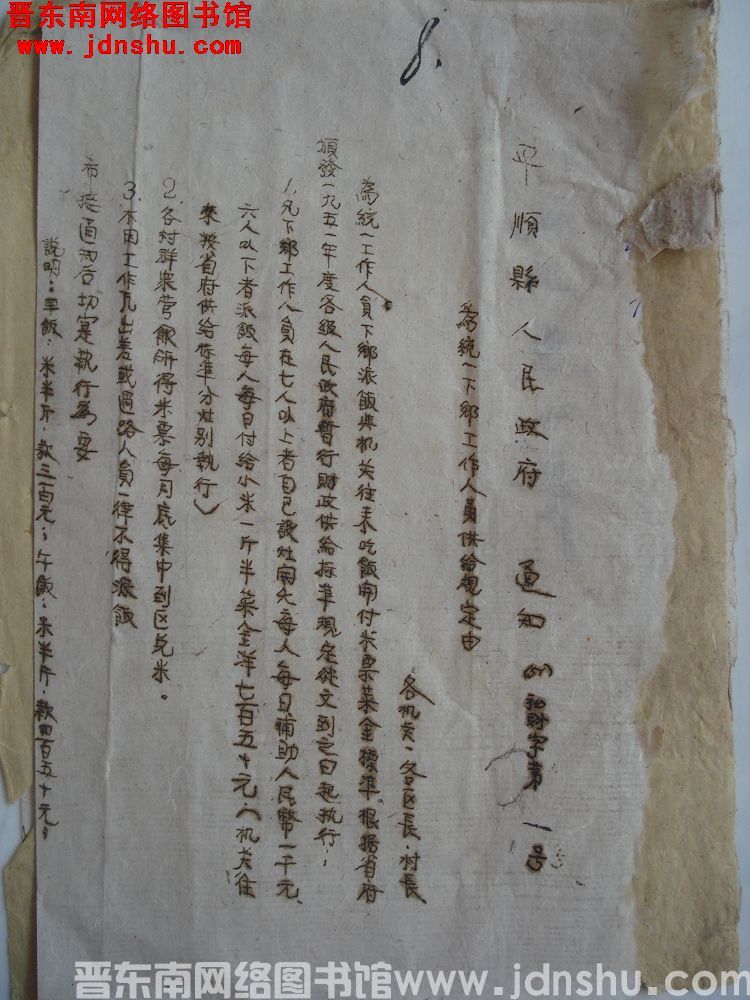 晋东南网络图书馆
www.jdnshu.com
8.
平順縣人民政府 通知 (51)財字第一号
為統一下鄉工作人員供给規定由
各机关、各區長、村長
為統一工作人員下鄉派飯與机关往来吃飯開付米票菜金標準。根据省府
頒發一九五一年度各級人民政府暫行財政供給标準規定從文到之日起执行：
1.凡下鄉工作人員在七人以上者自己設灶開火每人每日補助人民幣一千元、
六人以下者派飯每人每日付给小米一斤半菜金洋七百五十元、（机关往
来按省府供给标準分灶别執行）
2.各村群衆管飯所得米票每月底集中到区兑米。
3.不因工作凡出差或过路人員一律不得派飯
希接通知后切实執行為要
説明：早飯：米半斤，款三百元；午飯：米半斤，款四百五十元；
晋东南网络图书馆www.jdnshu.com